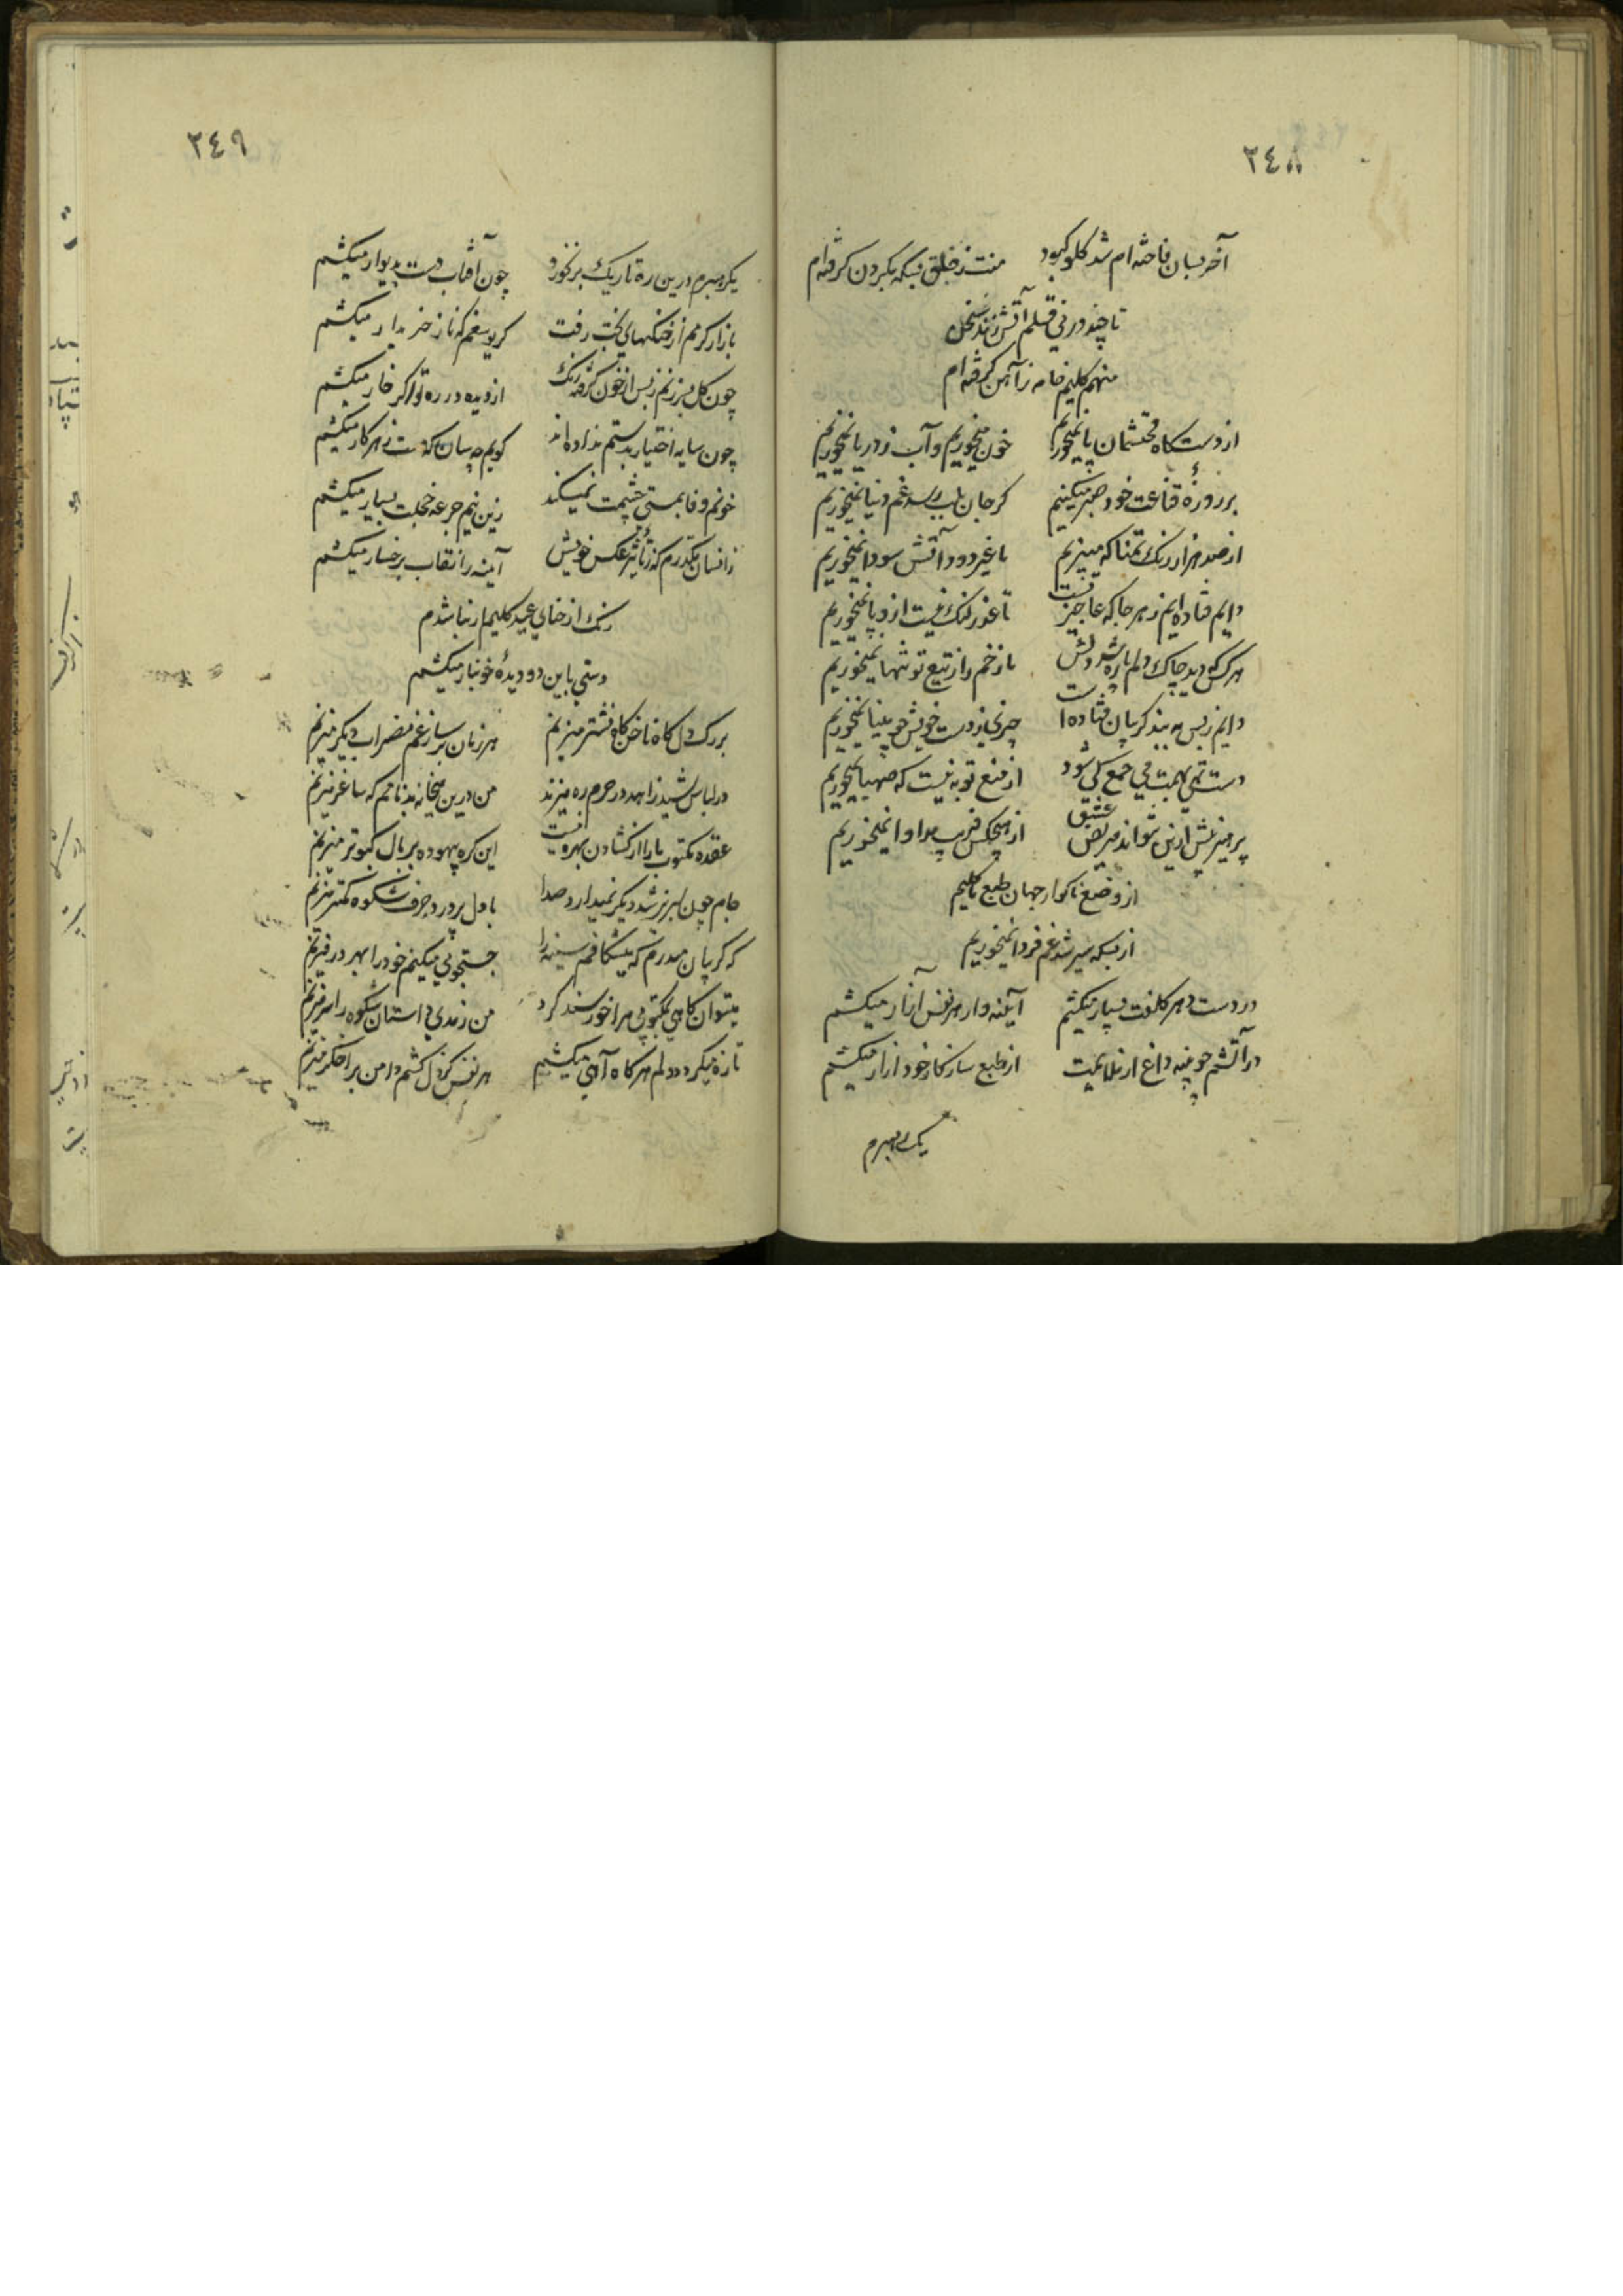 ٢٤٨
آخر بسان فاخته ام شد کلو کبود منت ز خلق بسکه بکردن کرفته ام
تا چند در نی قلم آتش زند سخن
منهم کلیم خامه ز آهن کرفته ام
از دستکاه محتشمان پا نمیخوریم خون میخوریم و آب ز دریا نمیخوریم
بر روزهٔ قناعت خود صبر میکنیم کر جان بلب رسد غم دنیا نمیخوریم
از صد هزار رنک تمنا که میپزیم با غیر دود آتش سودا نمیخوریم
دایم فتاده ایم ز هر جا که عاجزیست تا عذر لنک نیست ازو پا نمیخوریم
هر کس که دید چاک دلم پاره شد دلش ما زخم را ز تیغ تو تنها نمیخوریم
دایم ز بس به بند کریبان فتاده است چیزی ز دست خویش چو مینا نمیخوریم
دست تهی بهمت می جمع کی شود از منع توبه نیست که صهبا نمیخوریم
پرهیزش ازین نتواند مریض عشق از هیچکس فریب مداوا نمیخوریم
از وضع ناکوار جهان طبع ما کلیم
از بسکه سیر شد غم فردا نمیخوریم
در دست دهر کلفت بسیار میکشم آیینه وار هر نفس آزار میکشم
در آتشم چو پنبه داغ از ملایمت از طبع سازکار خود ازار میکشم
یک ره نبرم
٢٤٩
یکره نبرم درین ره تاریک بر نخورد چون آفتاب دست بدیوار میکشم
بازار کرمم از خنکیهای بخت رفت کر یوسفم که ناز خریدار میکشم
چون کل بسرزنم ز بس از خون کرفته رنک از دیده در ره تو اکر خار میکشم
چون سایه اختیار بدستم نداده اند کویم چه سان که دست ز هر کار میکشم
خونم وفا بمستی چشمت نمیکند زین نیم جرعه خجلت بسیار میکشم
ز افسان مکدرم که ز تأثیر عکس خویش آیینه را نقاب برخسار میکشم
رنک از حنای عید کلیم از نباشدم
دستی باین دو دیدهٔ خونبار میکشم
بر رک دل کاه ناخن کاه نشتر میزنم هر زمان بر ساز غم مضراب دیکر میزنم
در لباس شید زاهد در حرم ره میزند من درین میخانه بدنامم که ساغر میزنم
عقده مکتوب ما را از کشادن بهره نیست این کره بیهوده بر بال کبوتر میزنم
جام چون لبریز شد دیکر نمیدارد صدا با دل پر درد حرف شکوه کمتر میزنم
که کریبان میدرم که میشکافم سینه را جستجوئی میکنم خود را بهر در میزنم
میتوان کاهی بمکتوبی مرا خورسند کرد من ز نومیدی داستان شکوه را سر میزنم
تازه میکردد دلم هر کاه آهی میکشم هر نفس کز دل کشم دامن بر اخکر میزنم